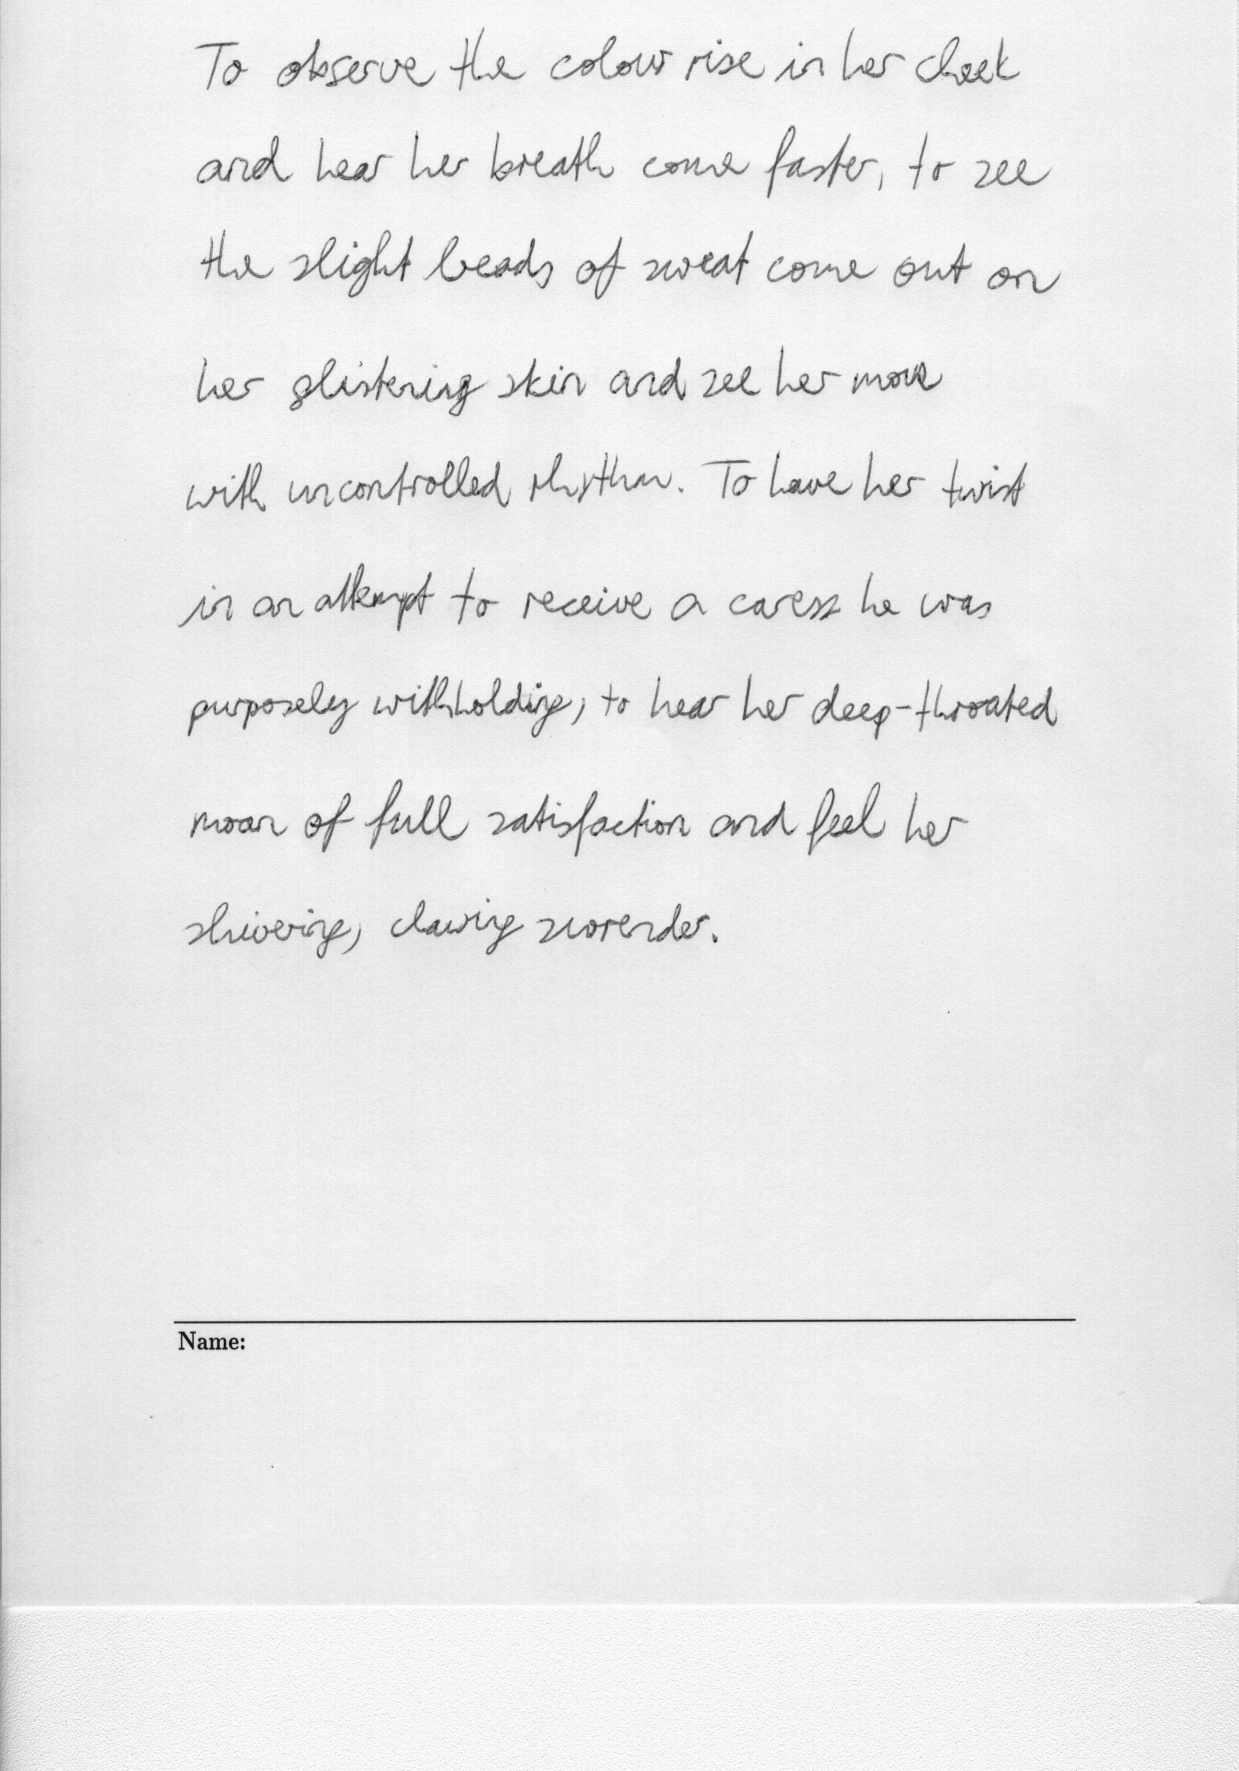 To observe the colour rise in her cheek
and hear her breath come faster, to see
the slight beads of sweat come out on
her glistening skin and see her move
with uncontrolled rhythm. To have her twist
in an attempt to receive a caress he was
purposely withholding, to hear her deep-throated
moan of full satisfaction and feel her
shivering, clawing surrender.
Name: